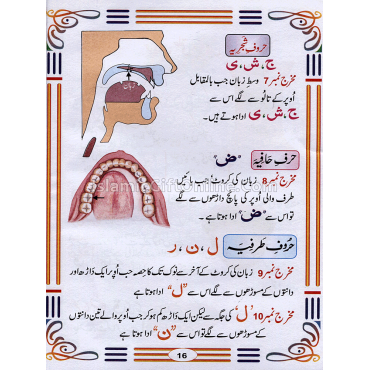 حروفِ شجریہ
ج، ش، ی
مخرج نمبر 7 وسطِ زبان جب بالمقابل
اُوپر کے تالُو سے لگے اس سے
ج، ش، ی ادا ہوتے ہیں۔
حرفِ حافیہ "ض"
مخرج نمبر 8 زبان کی کروٹ جب بائیں
طرف والی اُوپر کی پانچ داڑھوں سے لگے
تو اس سے "ض" ادا ہوتا ہے۔
حُروفِ طرفیہ ل، ن، ر
مخرج نمبر 9 زبان کی کروٹ کے آخر سے نوک تک کا حصہ جب اُوپر ایک داڑھ اور
دانتوں کے مسوڑھوں سے لگے اس سے "ل" ادا ہوتا ہے
مخرج نمبر 10 "ل" کی جگہ سے لیکن ایک داڑھ کم ہو کر جب اُوپر والے تین دانتوں
کے مسوڑھوں سے لگے تو اس سے "ن" ادا ہوتا ہے۔
16